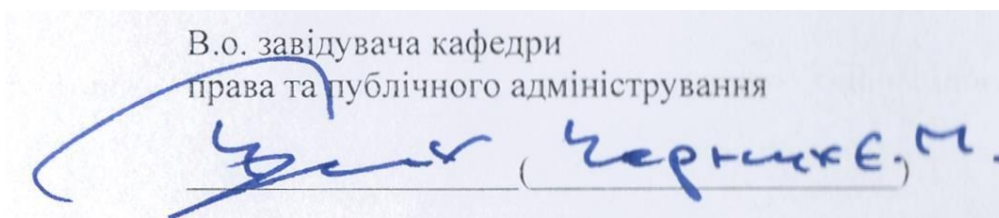 В.о. завідувача кафедри
права та публічного адміністрування
(Черник Є.М.)